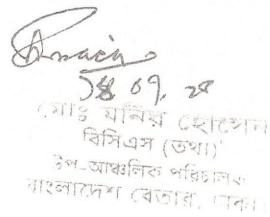 ১৪.০৭.২৪
মোঃ মনির হোসেন
বিসিএস (তথ্য)
উপ-আঞ্চলিক পরিচালক
বাংলাদেশ বেতার, ঢাকা।